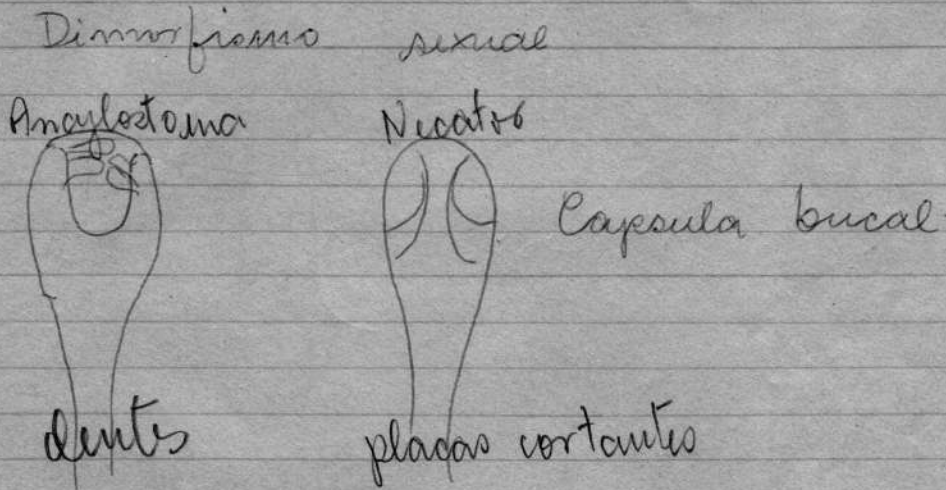 Dimorfismo sexual
Ancylostoma Necator
Capsula bucal
dentes placas cortantes